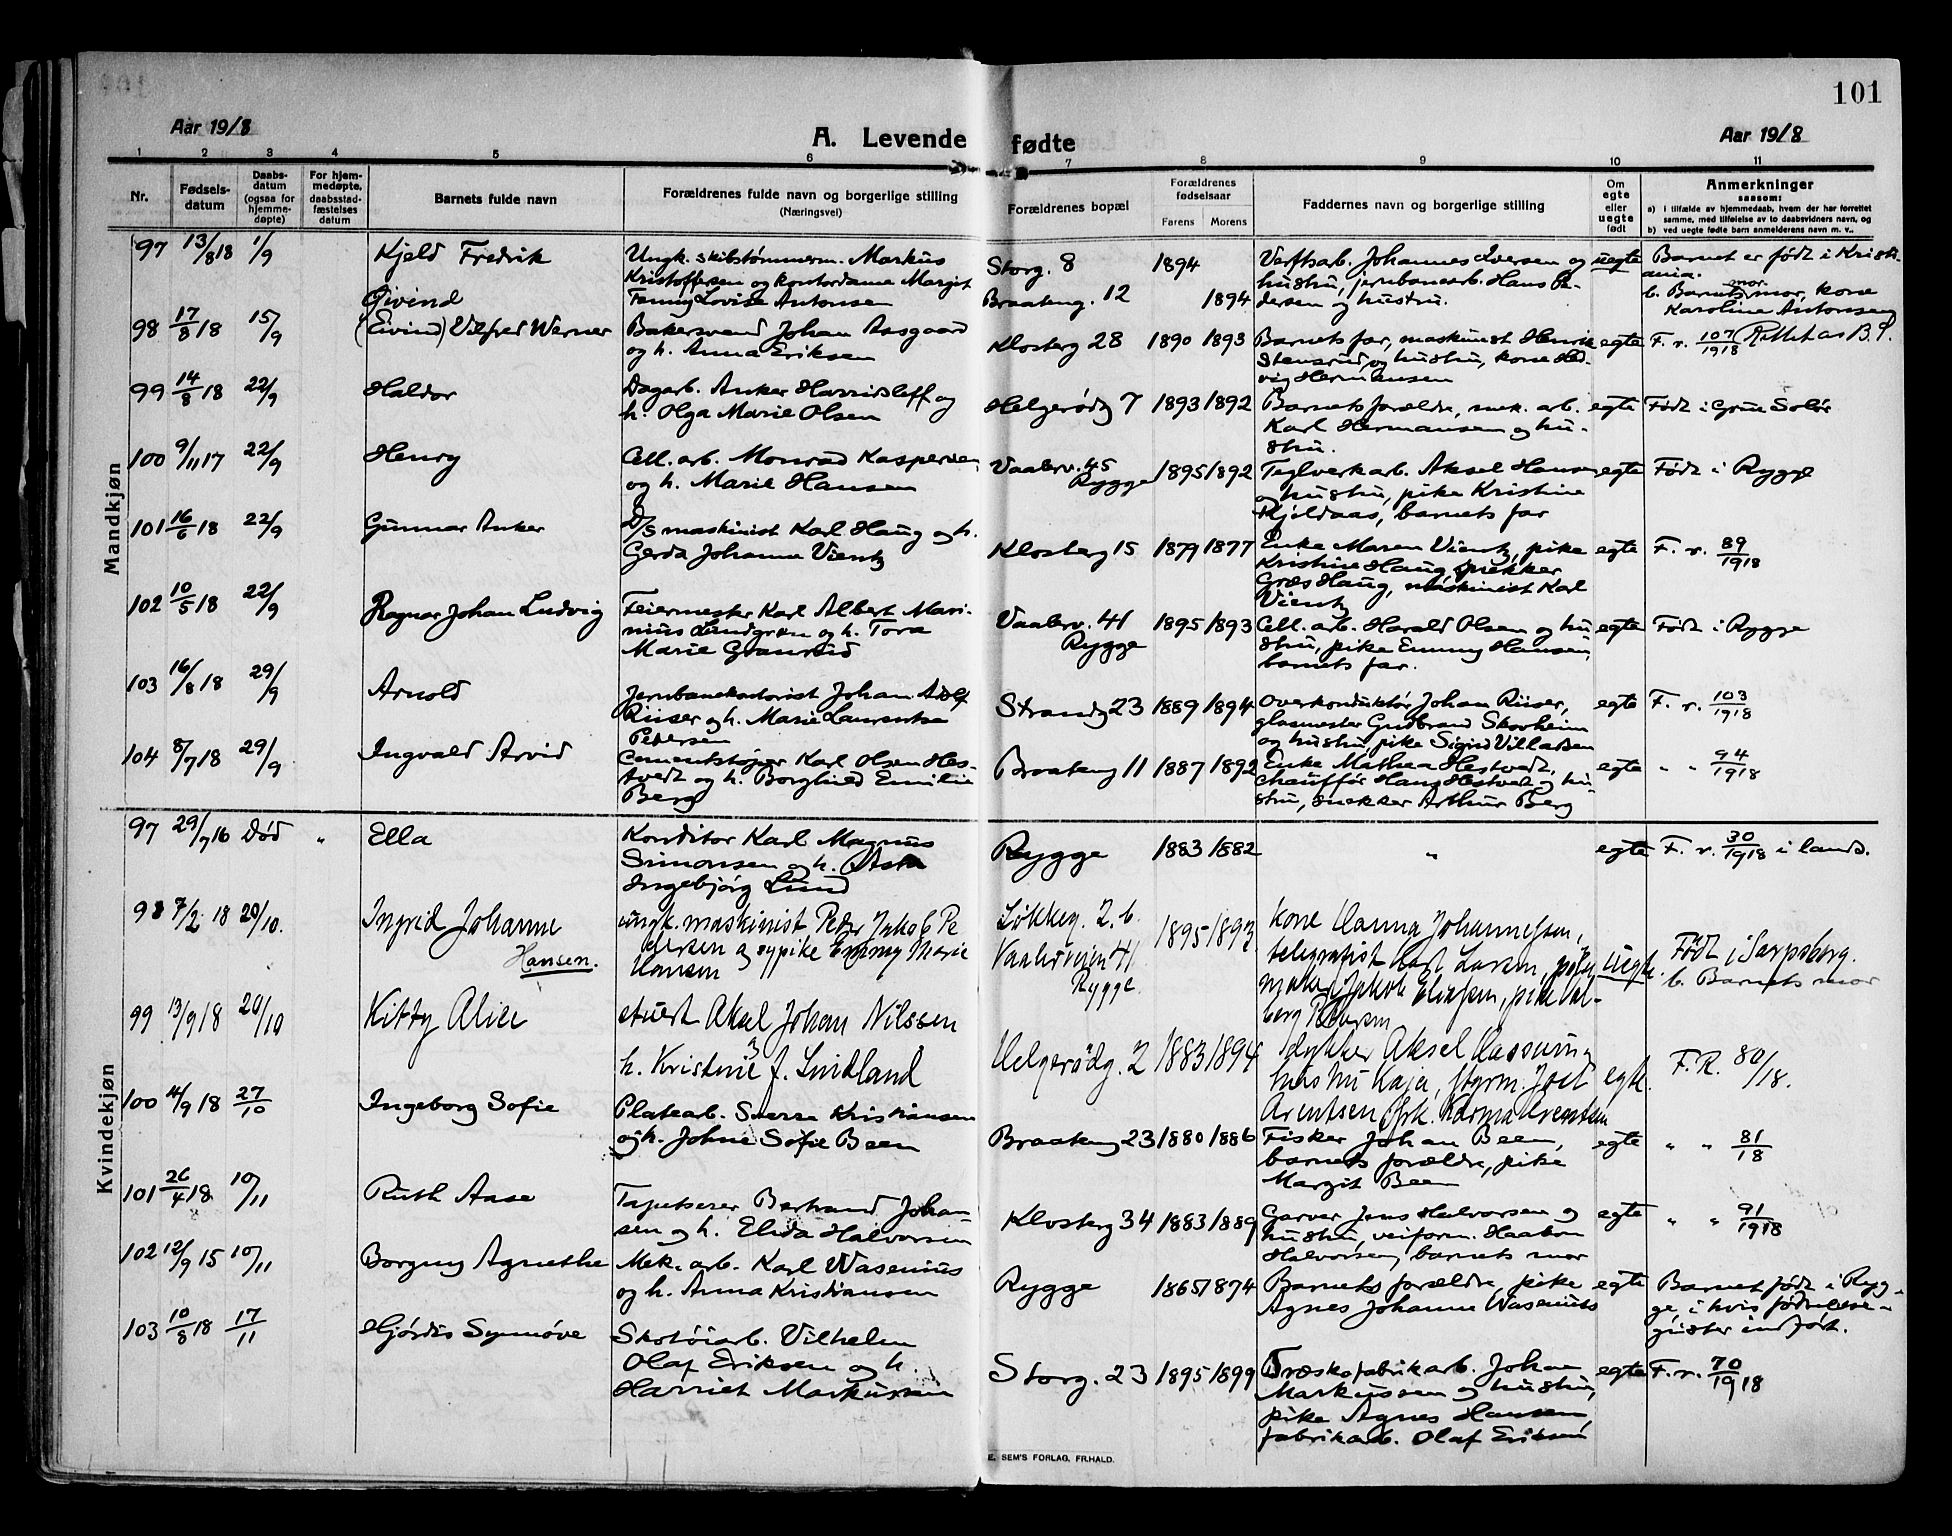 101
Aar 1918
A. Levende fødte
Aar 1918
1 2 3 4 5 6 7 8 9 10 11
Nr.
Fødsels-
datum
Daabs-
datum
(ogsaa for
hjemme-
døpte)
For hjem-
medøpte,
daabsstad-
fæstelses
datum
Barnets fulde navn
Forældrenes fulde navn og borgerlige stilling
(Næringsvei)
Forældrenes bopæl
Forældrenes
fødselsaar
Farens Morens
Faddernes navn og borgerlige stilling
Om
egte
eller
uegte
født
Anmerkninger
saasom:
a) i tilfælde av hjemmedaab, hvem der har forrettet
samme, med tilføielse av to daabsvidners navn, og
b) ved uegte fødte barn anmelderens navn m. v.
Mandkjøn
97 13/8 18 1/9 Kjeld Fredrik
Ungk. skibstømmerm. Markus
Kristoffersen og kontordame Margit
Fanny Lovise Antonsen
Storg. 8 1894
Braateng. 12 1894
Verftsarb. Johannes Iversen og
hustru, jernbanearb. Hans Pe-
dersen og hustru.
uegte
Barnet er født i Kristi-
ania.
b. Barnets mor, kone
mor
Karoline Antonsen
98 17/8 18 15/9 Øivind
(Eivind) Vilfred Werner
Bakersvend Johan Aasgaard
og h. Anna Eriksen
Klosterg 28 1890 1893
Barnets far, maskinist Henrik
Stensrud og hustru, kone Hed-
vig Hermansen
egte F. r. 107/1918 Rettet as B.P.
99 14/8 18 22/9 Haldor
Dagarb. Anker Harridsleff og
h. Olga Marie Olsen
Helgerødg 7 1893 1892
Barnets forældre, mek. arb.
Karl Hermansen og hu-
stru.
egte Født i Grue Solør
100 9/11 17 22/9 Henry
Cell. arb. Monrad Kaspersen
og h. Marie Hansen
Vaalerv. 45
Rygge 1895 1892
Teglverkarb. Aksel Hansen
og hustru, pike Kristine
Kjeldaas, barnets far
egte Født i Rygge
101 16/6 18 22/9 Gunnar Anker
D/s maskinist Karl Haug og h.
Gerda Johanne Vientz
Klosterg 15 1879 1877
Enke Maren Vientz, pike
Kristine Haug, snekker
Græs Haug, maskinist Karl
Vientz
egte F. r. 89/1918
102 10/5 18 22/9 Ragnar Johan Ludvig
Feiermester Karl Albert Mari-
nius Lundgren og h. Tora
Marie Granrud
Vaalerv. 41
Rygge 1895 1893
Cell. arb. Harald Olsen og hu
stru, pike Emmy Hansen,
barnets far.
egte Født i Rygge
103 16/8 18 29/9 Arnold
Jernbanekontorist Johan Adolf
Riiser og h. Marie Laurentse
Petersen
Strandg 23 1889 1894
Overkonduktør Johan Riiser,
glasmester Gudbrand Skorheim
og hustru, pike Sigrid Villadsen
egte F. r. 103/1918
104 8/7 18 29/9 Ingvald Arvid
Cementstøper Karl Olsen Hes-
tvedt og h. Borghild Emilie
Berg
Braateng 11 1887 1892
Enke Mathea Hestvedt,
chauffør Hans Hestvedt og hu-
stru, snekker Arthur Berg
egte " " 94/1918
Kvindekjøn
97 29/7 16 Død " Ella
Konditor Karl Magnus
Simonsen og h. Asta
Ingebjørg Lund
Rygge 1883 1882 "
egte F. r. 30/1918 i lands.
98 7/2 18 20/10. Ingrid Johanne
Hansen.
ungk. maskinist Peder Jakob Pe
dersen og sypike Emmy Marie
Hansen
Løkkeg. 2. b.
Vaalerveien 41
Rygge. 1895 1893
Kone Hanna Johannessen,
telegrafist Karl Larsen,
uegte.
Født i Sarpsborg.
b. Barnets mor
99 13/9 18 20/10 Kitty Alice
stuert Aksel Johan Nilssen
og
h. Kristine J. Lindland
Helgerødg. 2 1883 1894
dykker Aksel Rassum og
hustru Kaja, styrm. Jost
Arentsen, frk. Karma Arentsen
egte. F.R. 80/18.
100 14/9 18 27/10 Ingeborg Sofie
Platearb. Sverre Kristiansen
og h. Johne Sofie Been
Braateng 23 1880 1886
Fisker Johan Been,
barnets forældre, pike
Margit Been
egte " " 81/18
101 26/4 18 10/11 Ruth Aase
Tapetserer Bertrand Johan-
sen og h. Elida Halvorsen
Klosterg 34 1883 1889
Garver Jens Halvorsen og
hustru, veiform. Haakon
Halvorsen, barnets mor
egte " " 91/1918
102 12/9 15 10/11 Borgny Agnethe
Mek. arb. Karl Wasenius
og h. Anna Kristiansen
Rygge 1865 1874
Barnets forældre, pike
Agnes Johanne Wasenius
egte
Barnet født i Ryg-
ge, i hvis fødselsre-
gister indført.
103 10/8 18 17/11 Hjørdis Synnøve
Skotøiarb. Vilhelm
Olaf Eriksen og h.
Harriet Markussen
Storg. 23 1895 1899
Træskofabrikarb. Johan
Markussen og hustru,
pike Agnes Hansen,
fabrikarb. Olaf Eriksen
egte F. r. 70/1918
E. SEM'S FORLAG, FR.HALD.